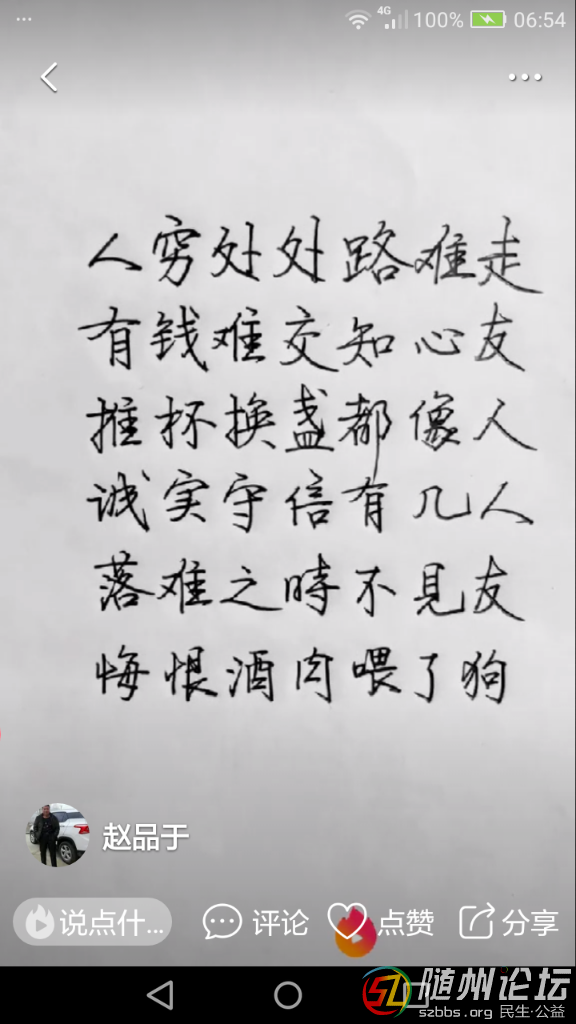 4G 100% 06:54
人穷处处路难走
有钱难交知心友
推杯换盏都像人
诚实守信有几人
落难之時不見友
悔恨酒肉喂了狗
赵品于
说点什... 评论 点赞 分享
随州论坛
szbbs.org 民生·公益